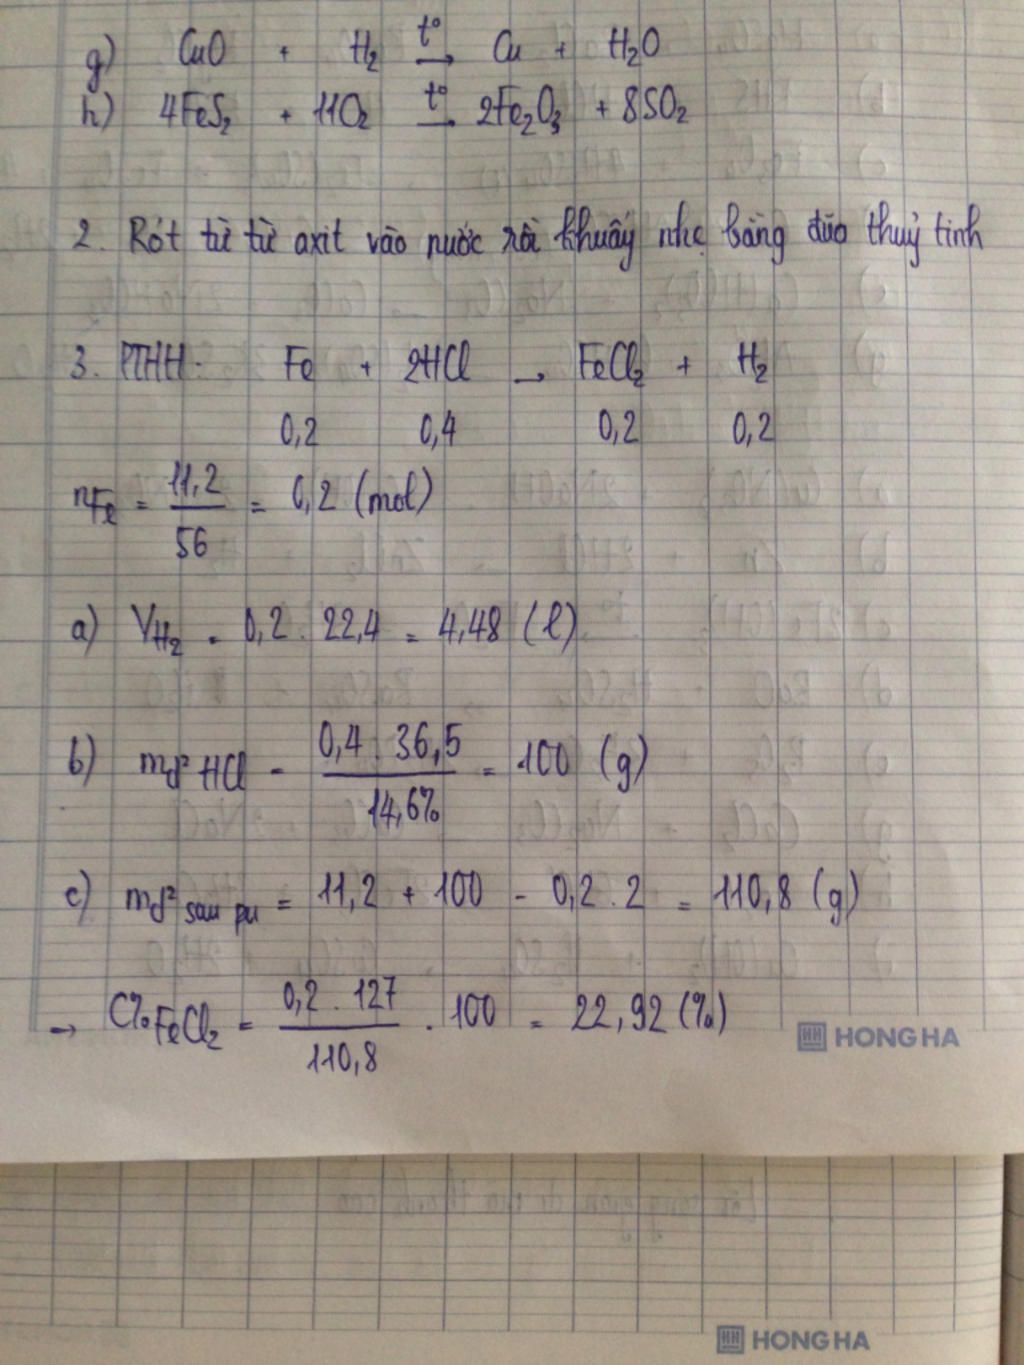 g) CuO + H₂ t°→ Cu + H₂O
h) 4FeS₂ + 11O₂ t°→ 2Fe₂O₃ + 8SO₂
2. Rót từ từ axit vào nước rồi khuấy nhẹ bằng đũa thuỷ tinh
3. PTHH: Fe + 2HCl → FeCl₂ + H₂
0,2 0,4 0,2 0,2
nFe = 11,2/56 = 0,2 (mol)
a) VH₂ = 0,2 . 22,4 = 4,48 (l)
b) md² HCl = 0,4 . 36,5/14,6% = 100 (g)
c) md² sau pu = 11,2 + 100 - 0,2 . 2 = 110,8 (g)
→ C% FeCl₂ = 0,2 . 127/110,8 . 100 = 22,92 (%)
HONG HA
HONG HA